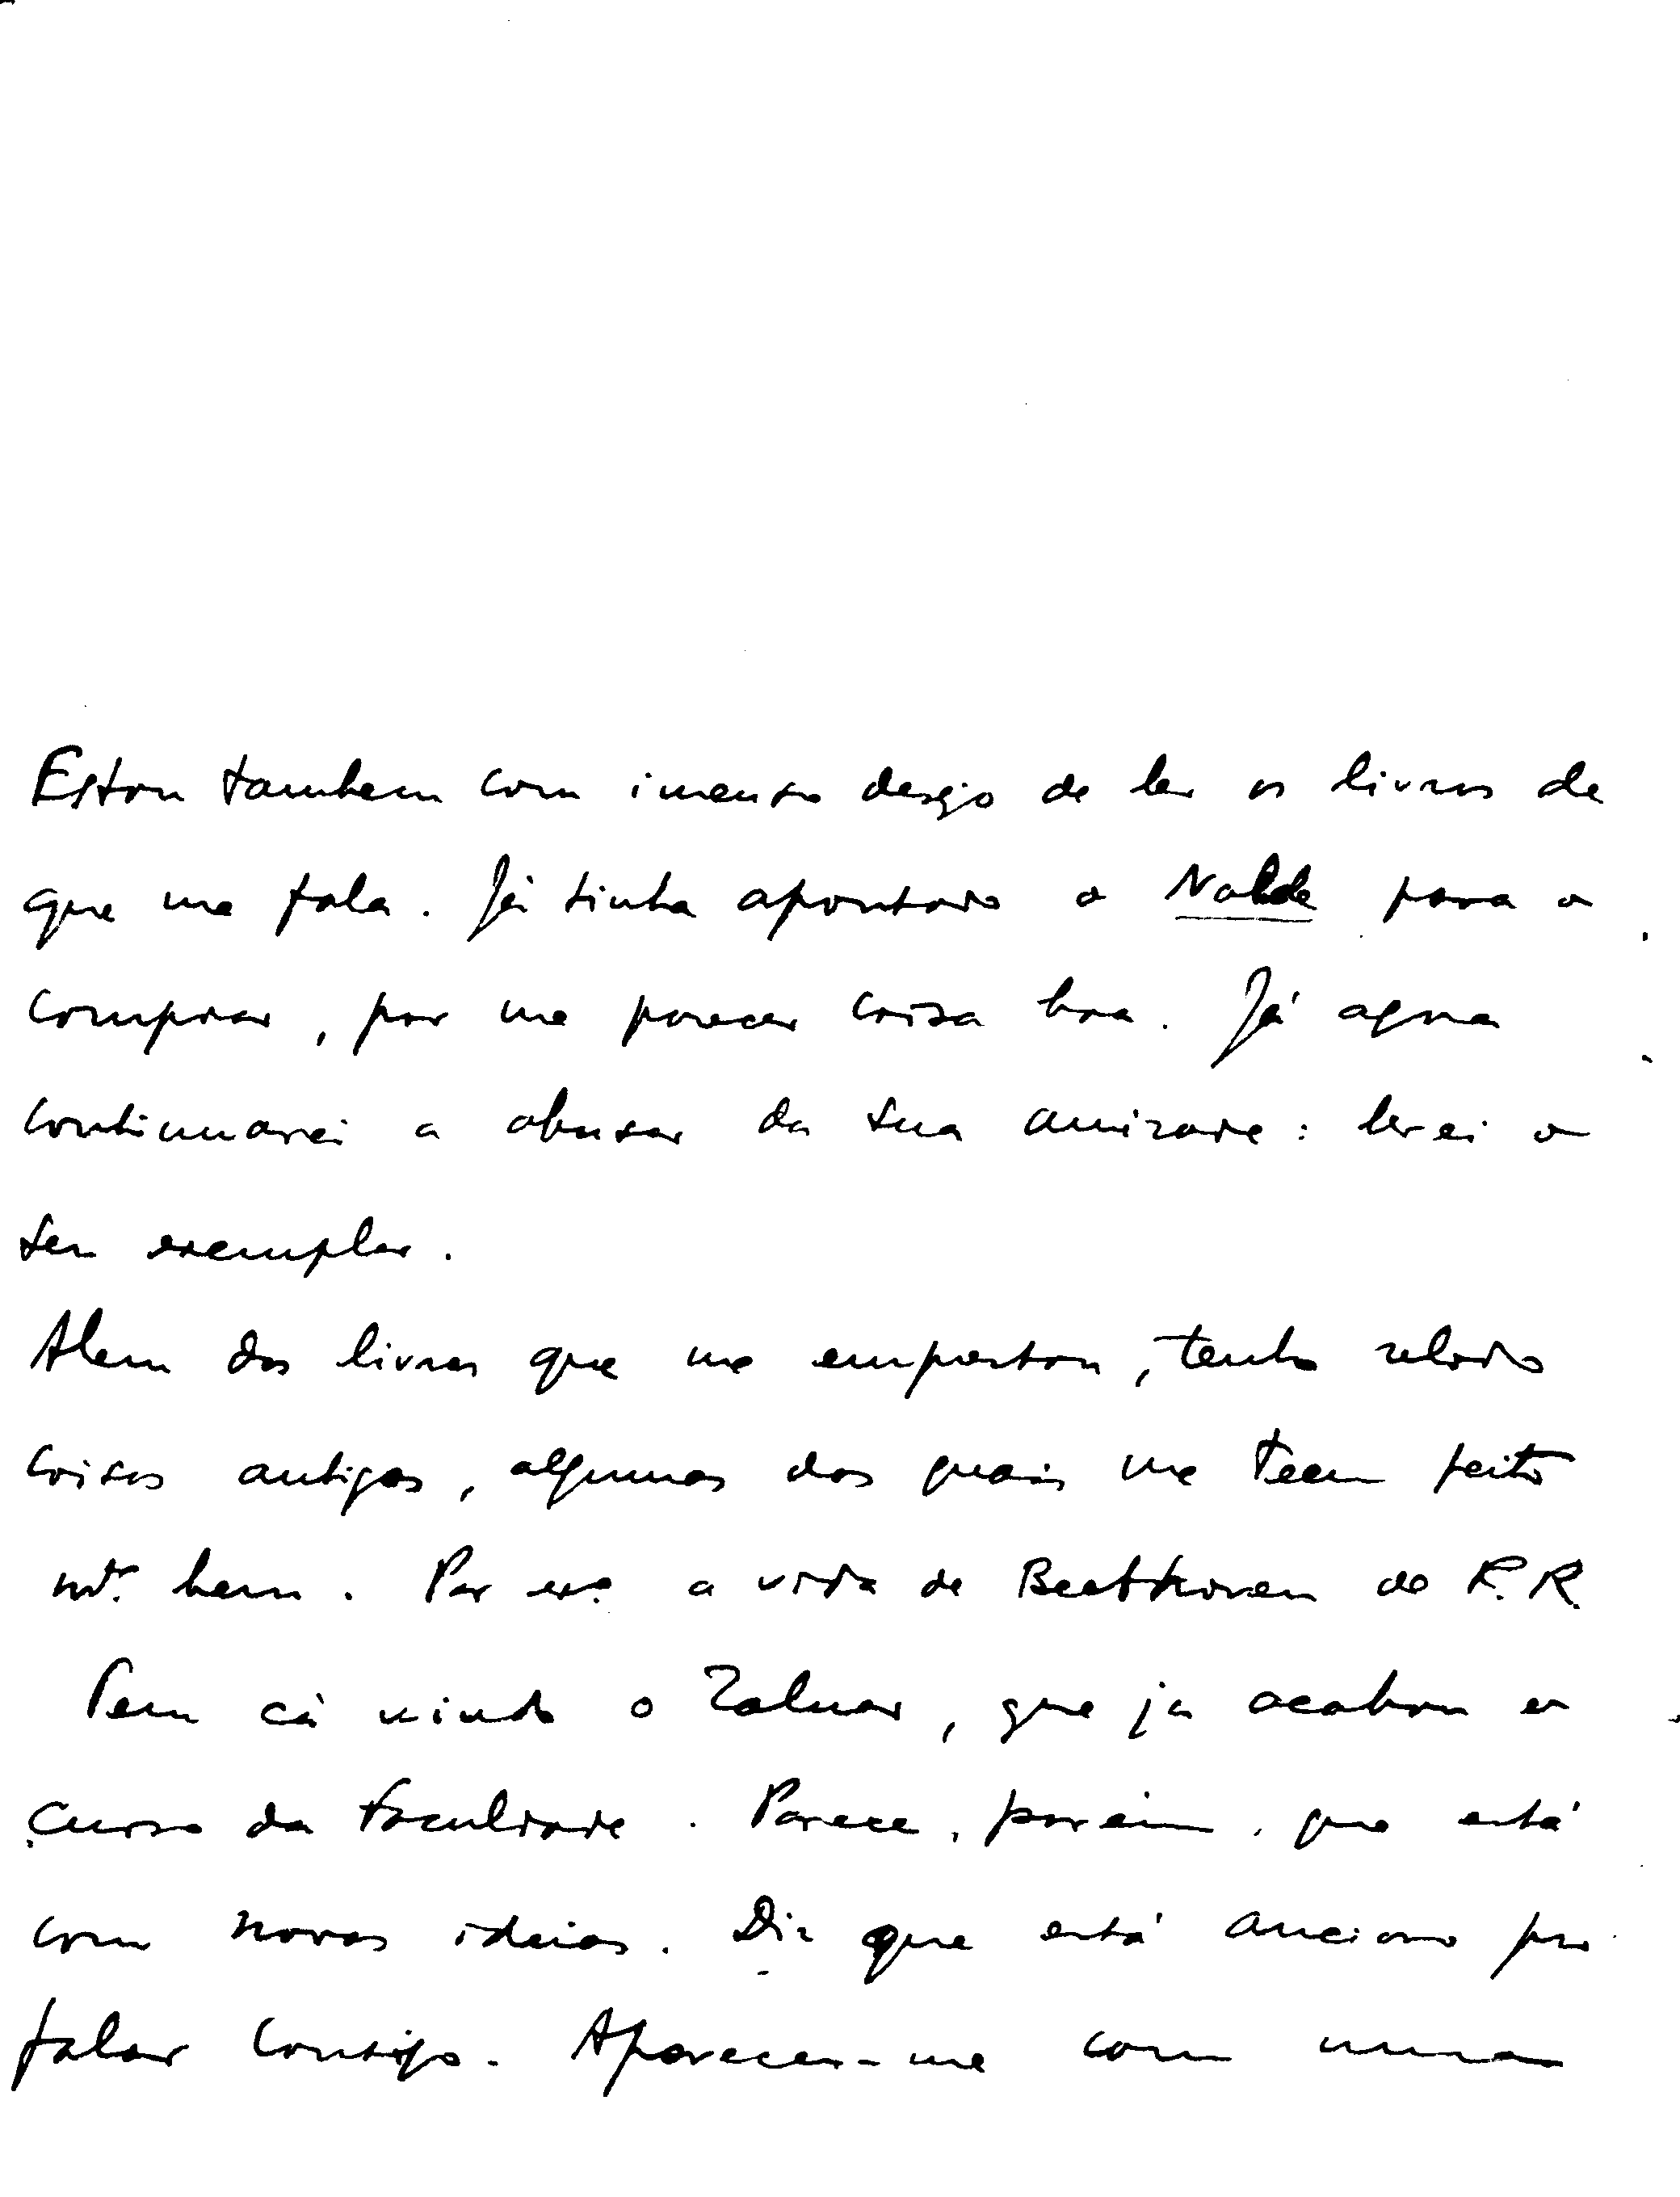 Estou tambem com imenso desejo de ler os livros de
que me fala. Já tinha apontado o Nolde para o
comprar, por me parecer coisa boa. Já agora
continuarei a abusar da sua amizade: lerei o
seu exemplar.
Alem dos livros que me emprestou, tenho relido
coisas antigas, algumas das quais me teem feito
mtº. bem. Por exº. a vida de Beethoven do R. R.
Tem cá vindo o Zaluar, que já acabou o
curso da Faculdade. Parece, porém, que está
com novas ideias. Diz que está ancioso por
falar consigo. Apareceu-me com uma